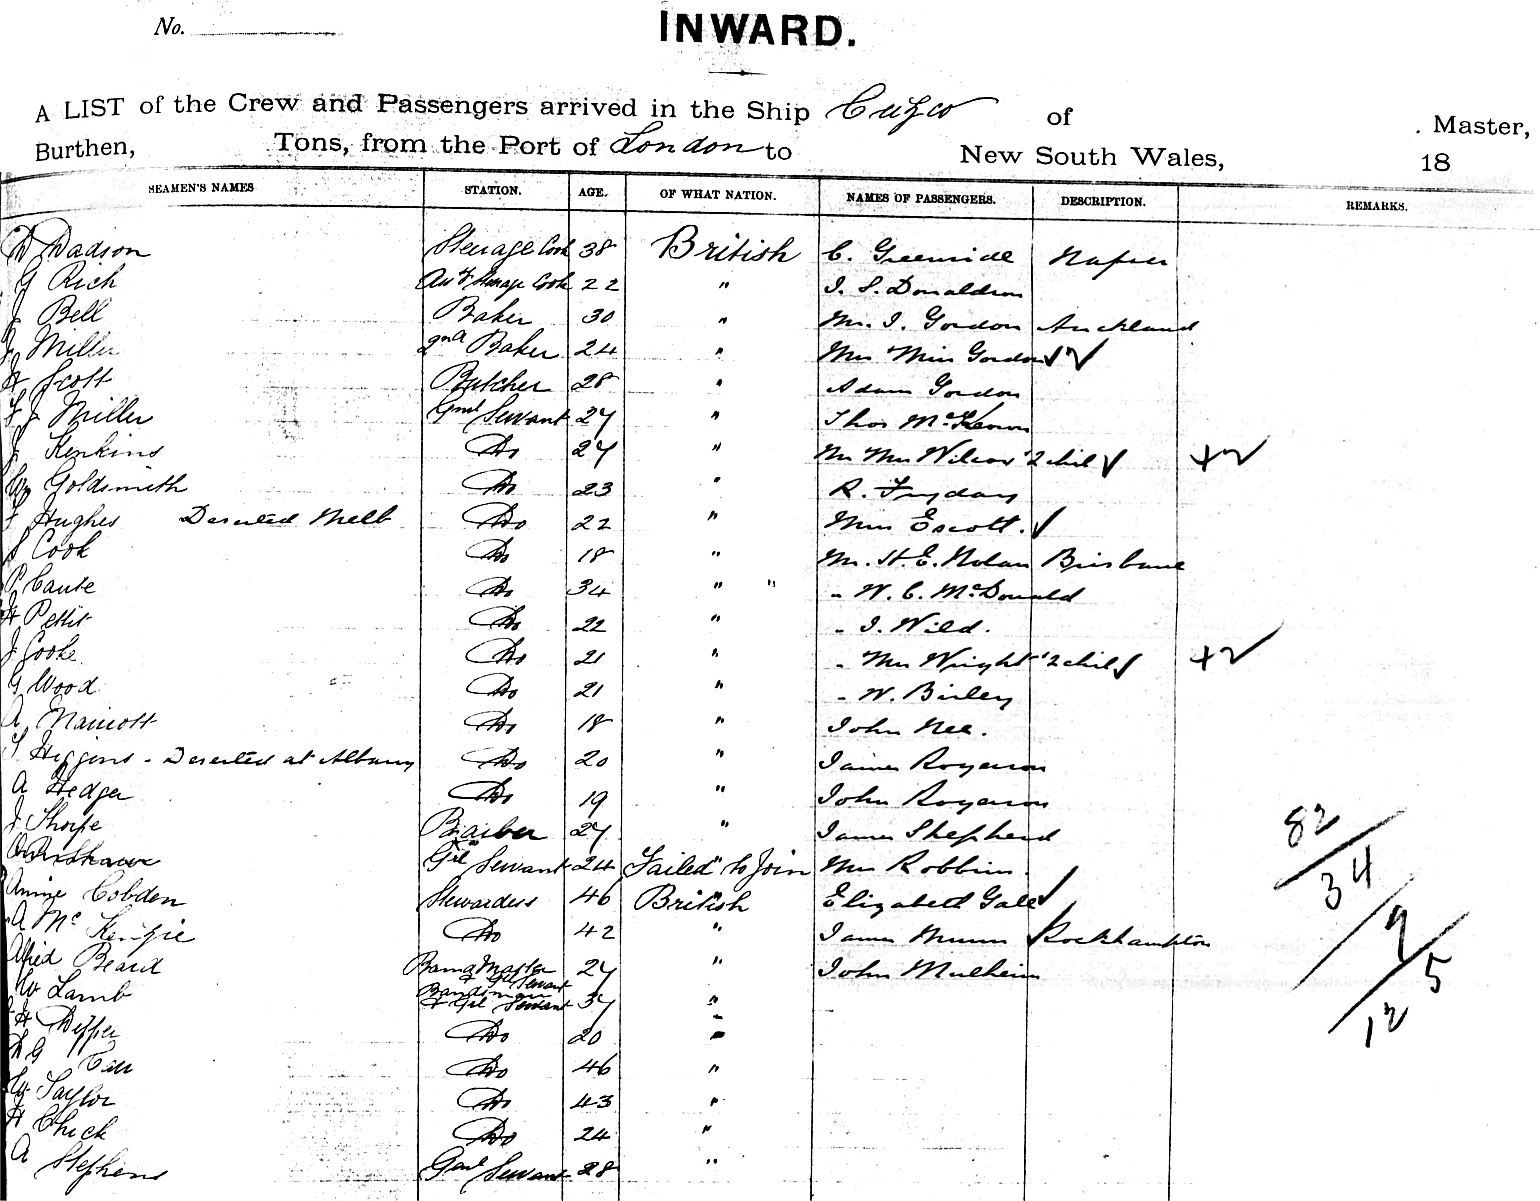 No.
INWARD.
A LIST of the Crew and Passengers arrived in the Ship Cuzco of . Master,
Burthen, Tons, from the Port of London to New South Wales, 18
SEAMEN'S NAMES STATION. AGE. OF WHAT NATION. NAMES OF PASSENGERS. DESCRIPTION. REMARKS.
W Dadson Steerage Cook 38 British C. Greenside Napier
G Rich Asst Steerage Cook 22 " I. S. Donaldson
J Bell Baker 30 " Mr. I. Gordon Auckland
J Miller 2nd Baker 24 " Mrs Miss Gordon
H Scott Butcher 28 " Adam Gordon
F J Miller Genl Servant 27 " Thos McKeown
J Jenkins Do 27 " Mr Mrs Wilcox 2 chil +2
Wm Goldsmith Do 23 " R. Fryday
F Hughes Deserted Melb Do 22 " Miss Escott.
S Cook Do 18 " Mr. H. E. Nolan Brisbane
P Caute Do 34 " " " W. C. McDonald
H Pettit Do 22 " " I. Wild.
J Cooke Do 21 " " Mrs Wright 2 chil +2
G Wood Do 21 " " W. Birley
A Marriott Do 18 " John Nee.
T Higgins - Deserted at Albany Do 20 " James Rogerson
A Hedger Do 19 " John Rogerson
J Thorpe Barber 27 " James Shepherd 82
Shawe Gel Servant 24 "Failed" to Join Mrs Robbins. 34
Annie Cobden Stewardess 46 British Elizabeth Gale
A McKenzie Do 42 " James Munn Rockhampton 9
Alfred Beard Band Master & Gl Servant 27 " John Mulheim 5
W Lamb Bandsman & Gel Servant 37 " 12
H Dipper Do 20 "
W G Carr Do 46 "
W Taylor Do 43 "
H Chick Do 24 "
A Stephens Genl Servant 28 "